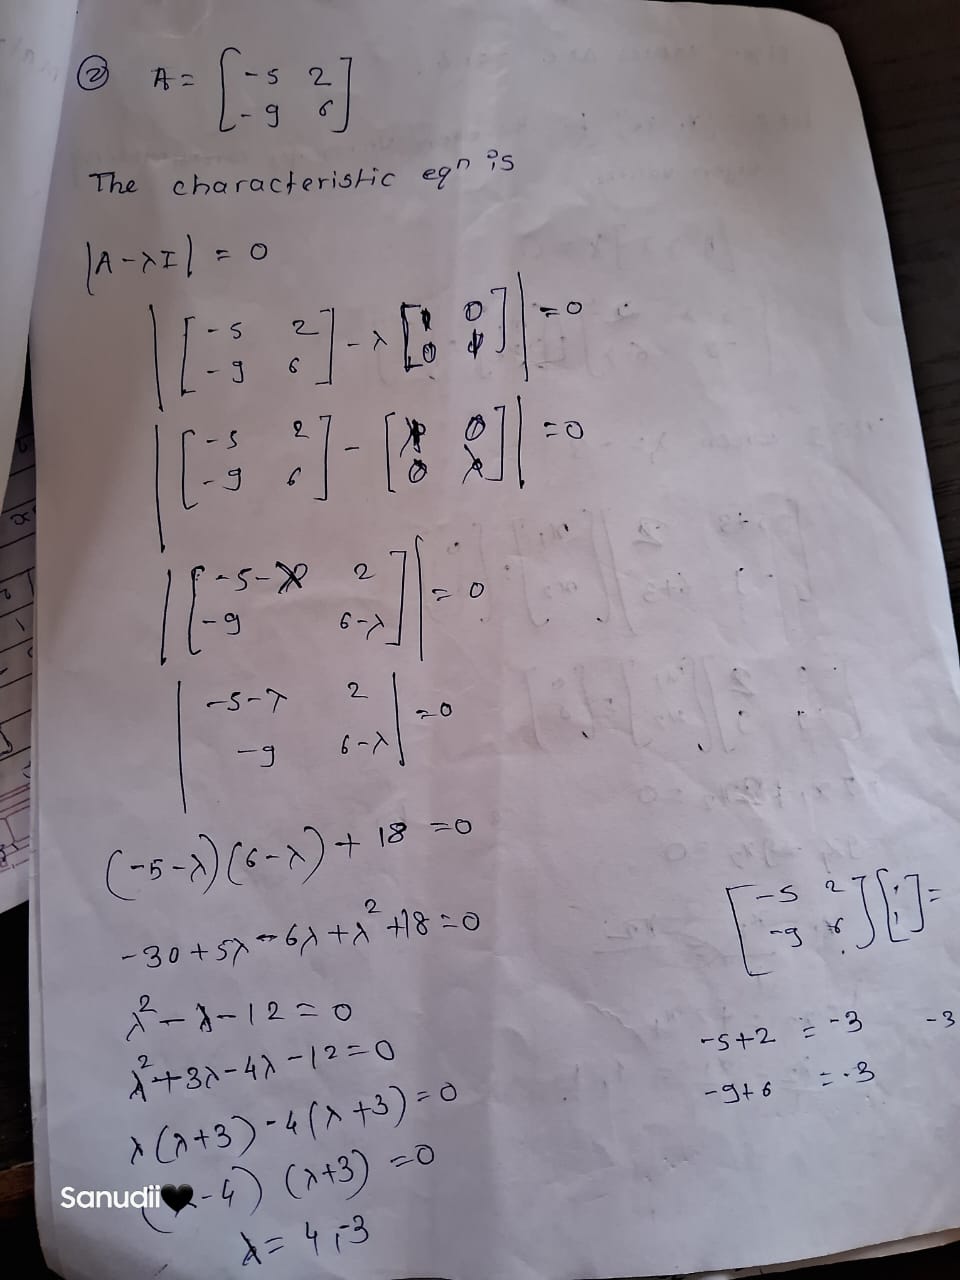 ② A = [ -5 2
-9 6 ]
The characteristic eqⁿ is
|A-λI| = 0
| [ -5 2
-9 6 ] - λ [ 1 0
0 1 ] | = 0
| [ -5 2
-9 6 ] - [ λ 0
0 λ ] | = 0
| [ -5-λ 2
-9 6-λ ] | = 0
| -5-λ 2
-9 6-λ | = 0
(-5-λ)(6-λ) + 18 = 0
-30+5λ-6λ+λ²+18=0
λ²-λ-12=0
λ²+3λ-4λ-12=0
λ(λ+3)-4(λ+3)=0
-4) (λ+3) =0
λ= 4,-3
[ -5 2
-9 6 ] [ 1
1 ] =
-5+2 = -3 -3
-9+6 = -3
Sanudii🖤